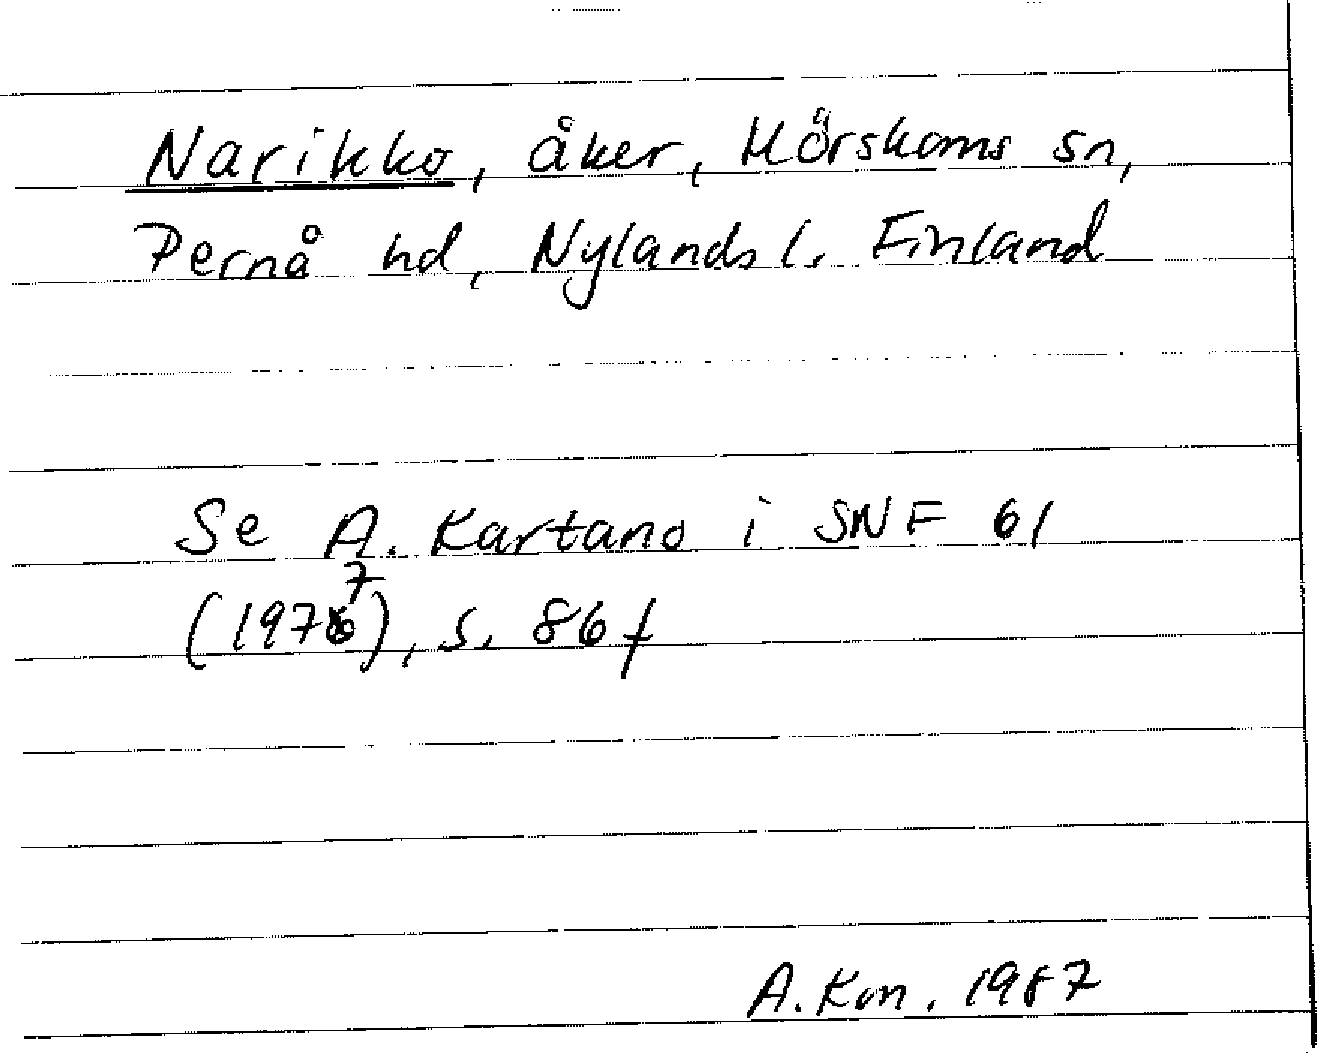 Narikko, åker, Mörskoms sn,
Pernå hd, Nylands l. Finland
Se A. Kartano i SNF 61
(1977), s. 86 f
A. Kon. 1987